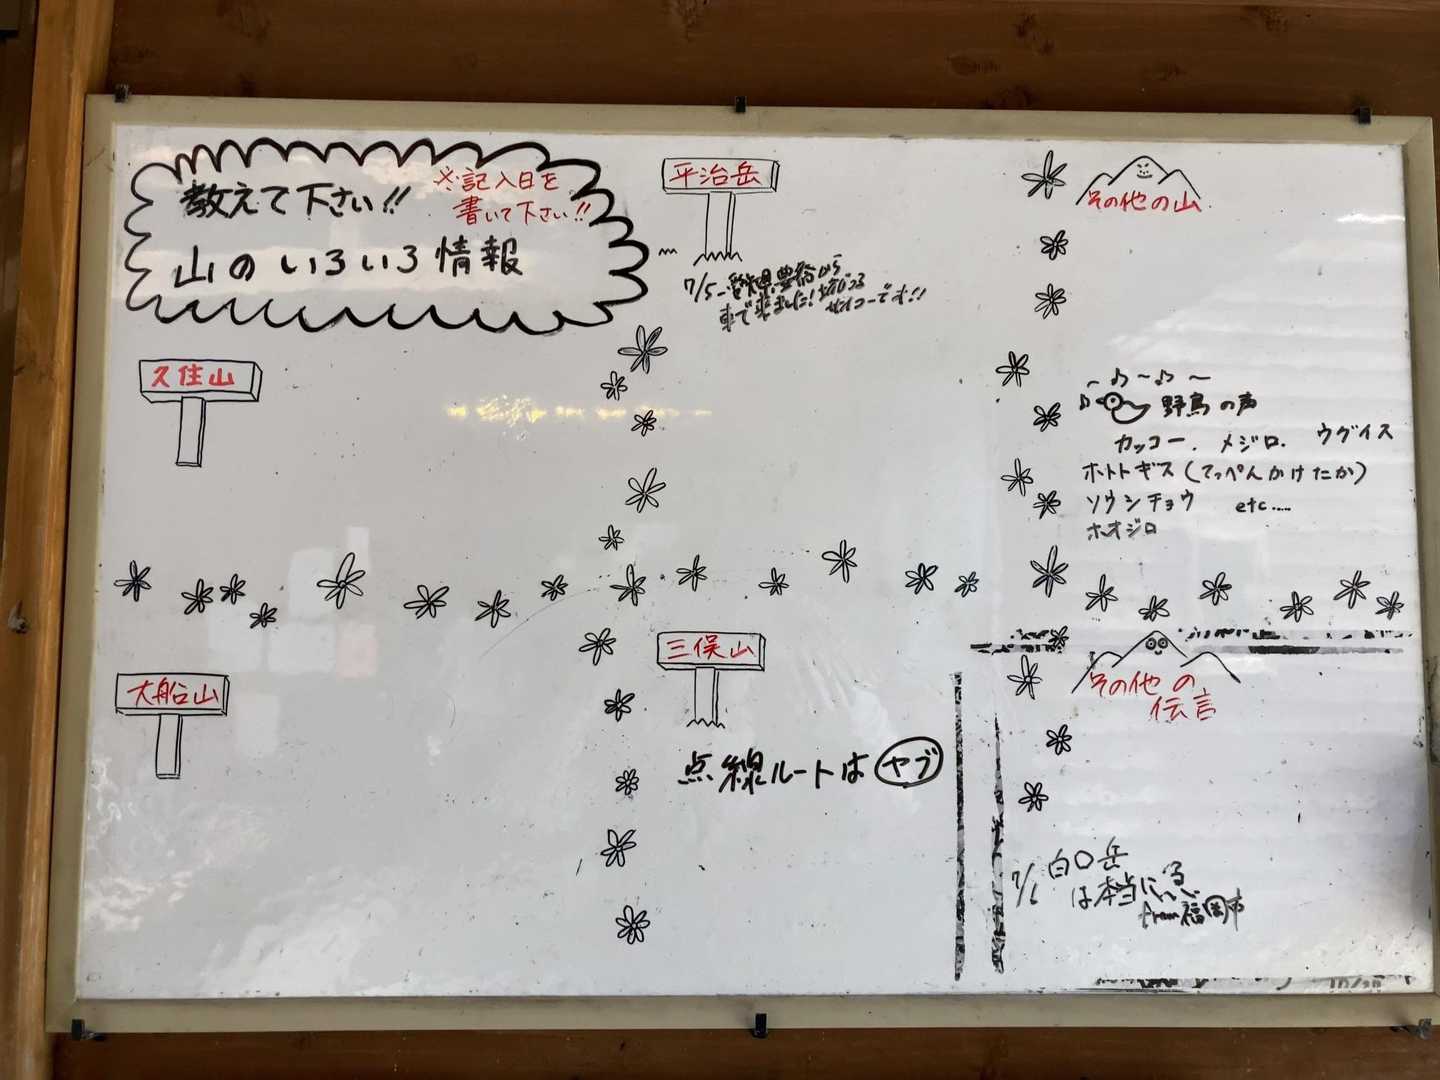 教えて下さい!!
※記入日を
書いて下さい!!
山のいろいろ情報
平治岳
7/5 愛知県豊橋から
車で来ました!
サイコーです!!
その他の山
久住山
野鳥の声
カッコー. メジロ. ウグイス
ホトトギス(てっぺんかけたか)
ソウシチョウ etc.....
ホオジロ
大船山
三俣山
点線ルートはヤブ
その他の
伝言
7/1 白口岳
は本当に
from 福岡市